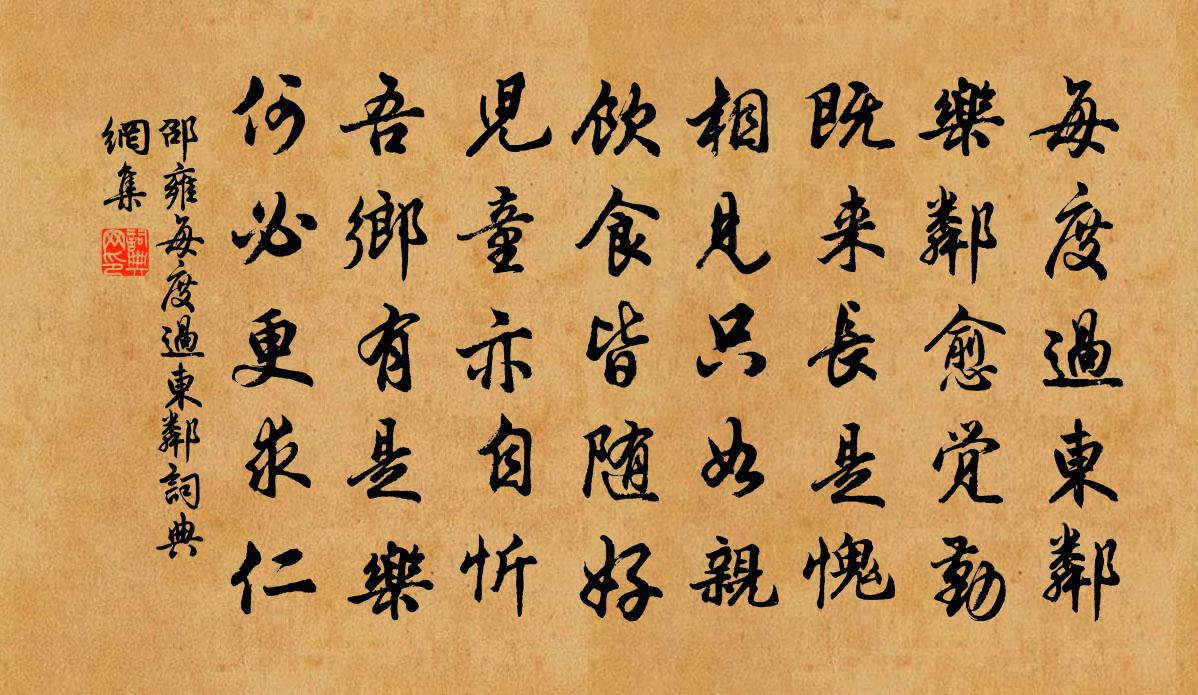 每度過東鄰
樂鄰愈覺勤
既来長是愧
相見只如親
飲食皆随好
児童亦自忻
吾鄉有是樂
何必更求仁
邵雍每度過東鄰詞典
網集
詞典
网印